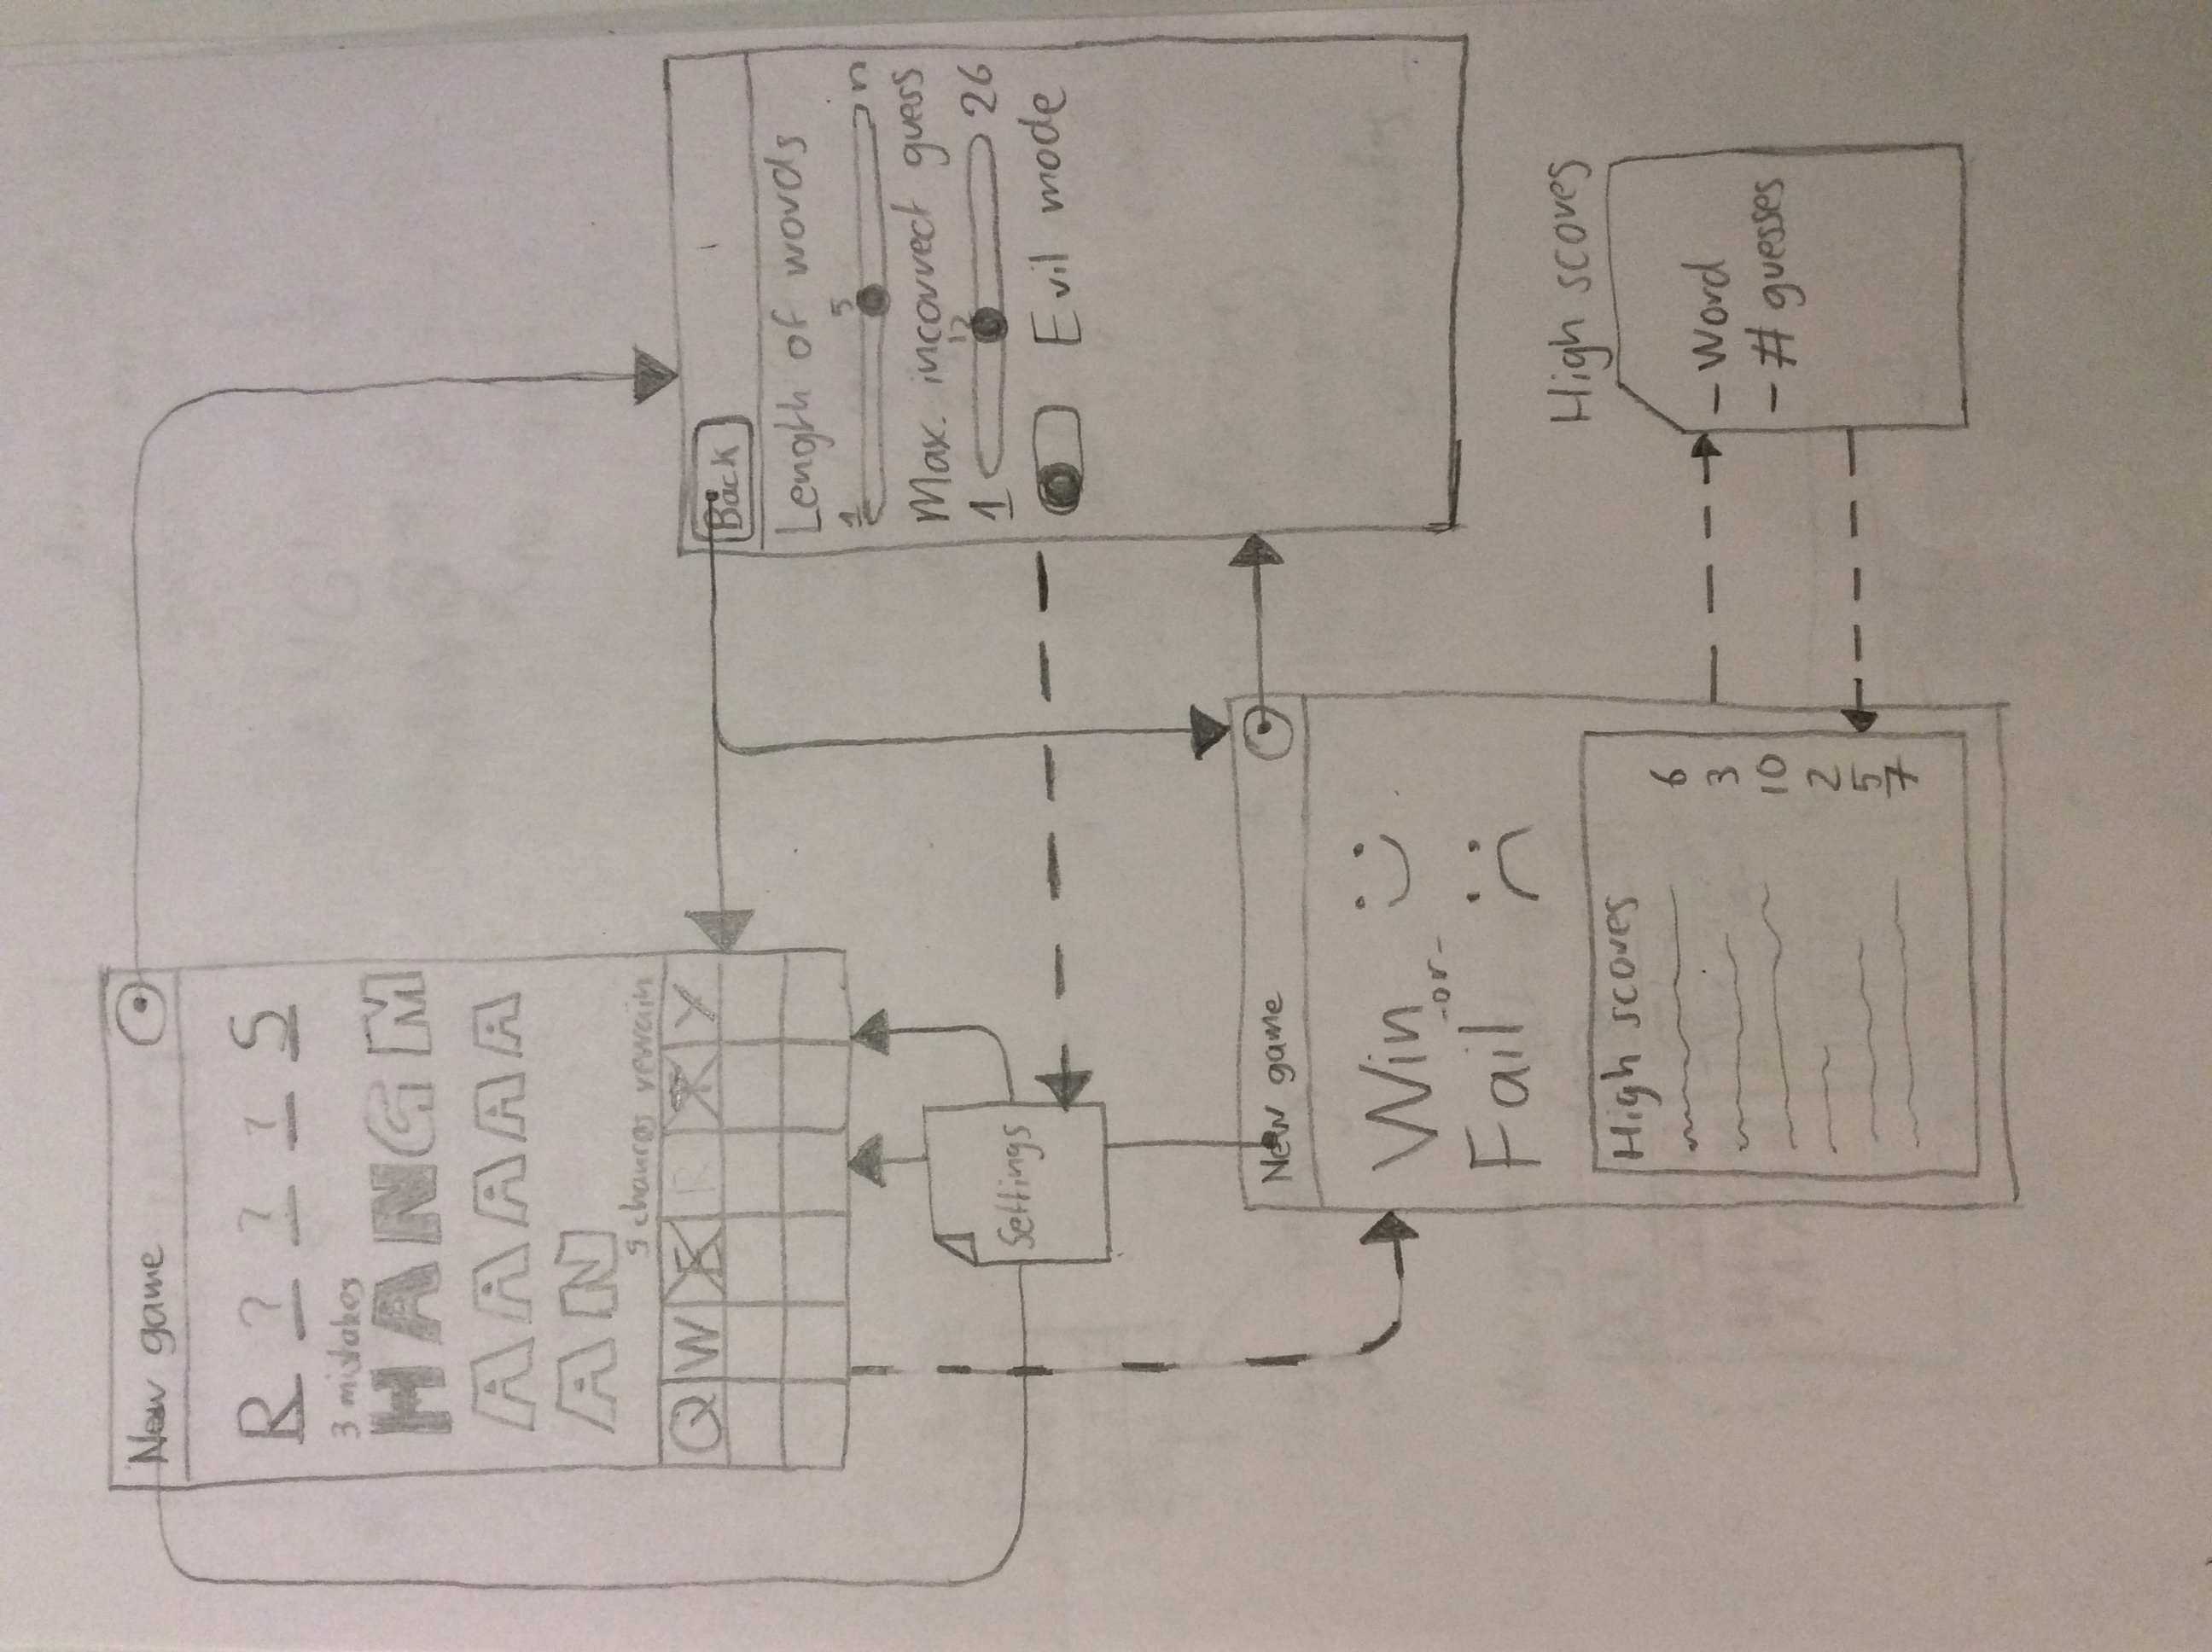 New game
R ? ? ? S
3 mistakes
HANGM
AAAAA
AN
9 chances remain
Q W E R T Y
Back
Length of words
1 5 n
Max. incorrect guess
1 12 26
Evil mode
Settings
New game
Win :)
-or-
Fail :(
High scores
6
3
10
2
5
7
High scores
- Word
- # guesses